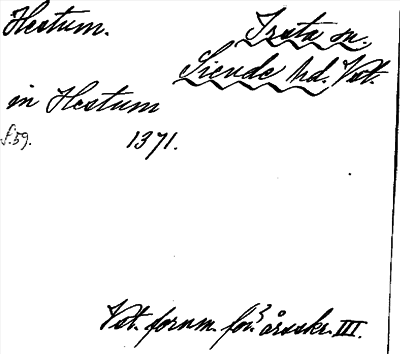 Hestum.
Irsta sn.
Siende hd. Vstm.
in Hestum
f. 59. 1371.
Vst. fornm. för:s årsskr. III.